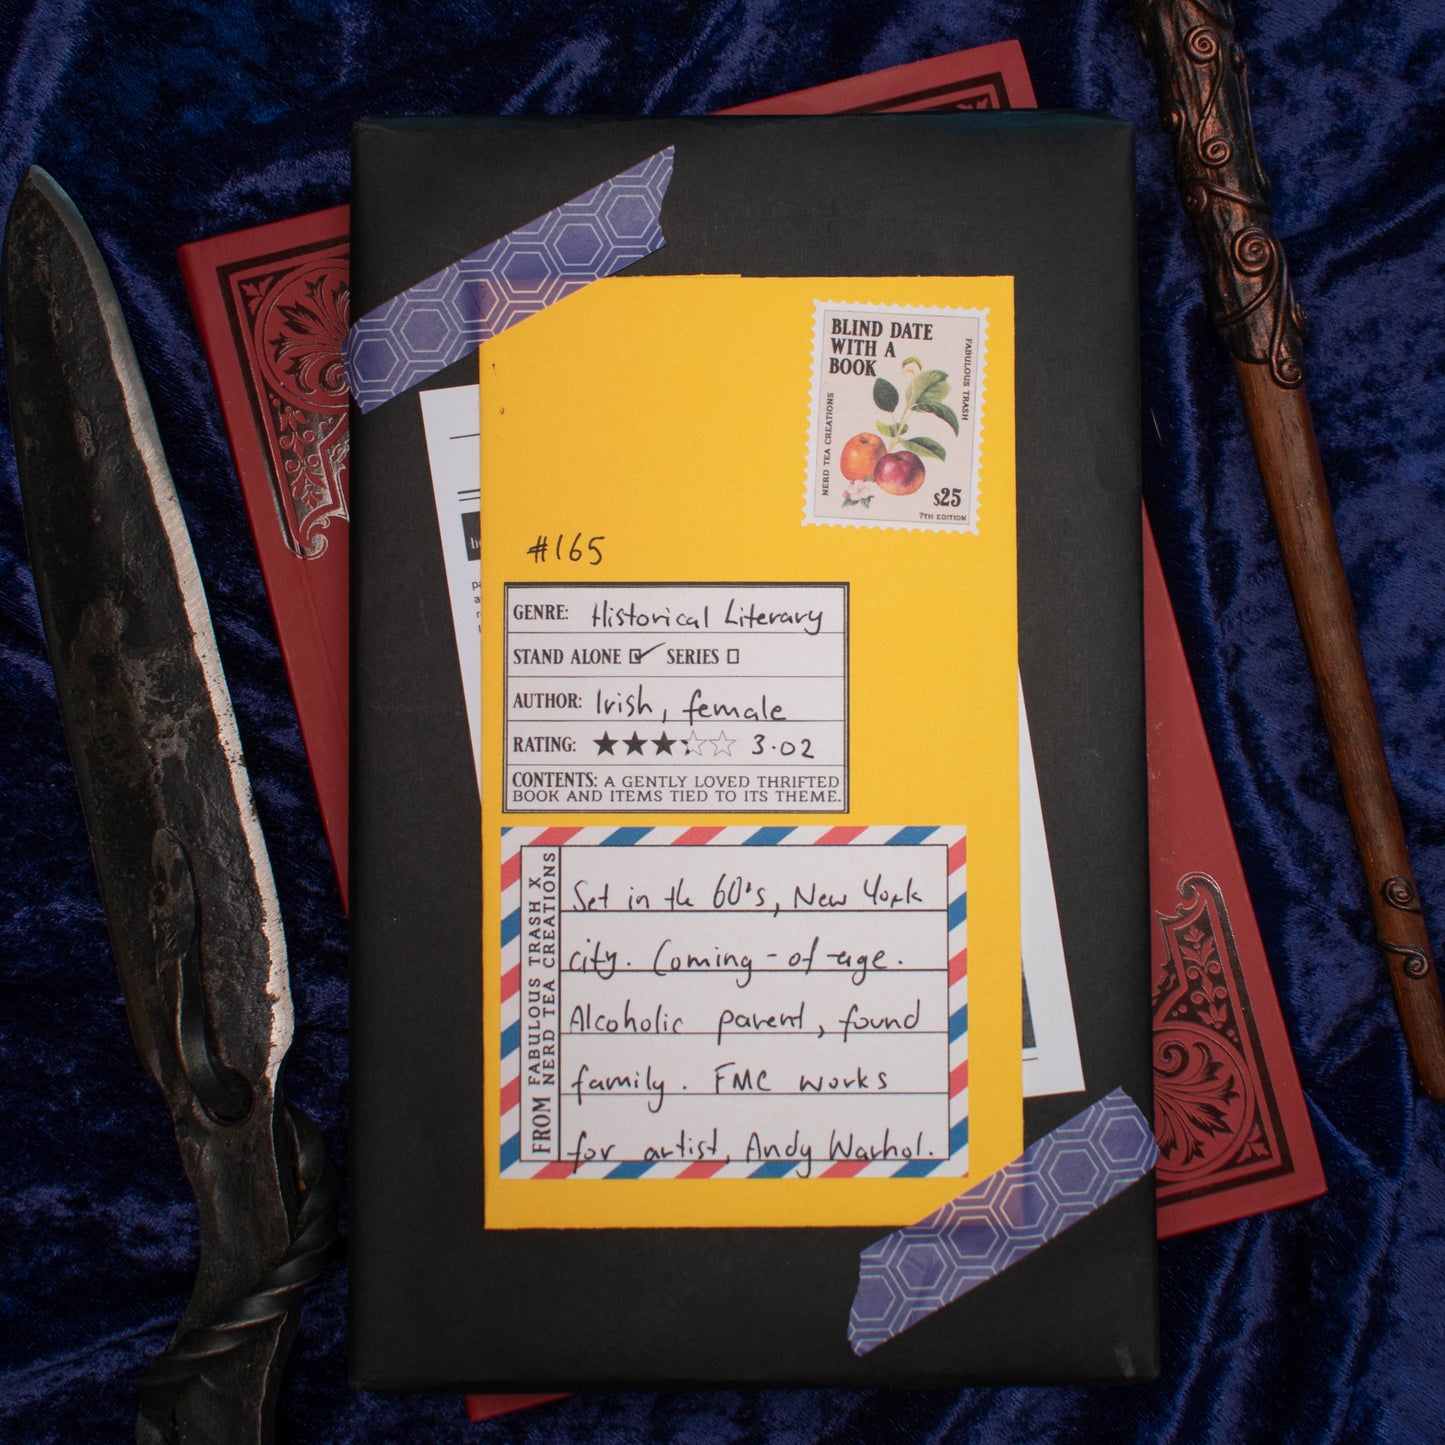 BLIND DATE
WITH A
BOOK
FABULOUS TRASH
NERD TEA CREATIONS
$25
7TH EDITION
#165
GENRE: Historical Literary
STAND ALONE SERIES
AUTHOR: Irish, female
RATING: 3.02
CONTENTS: A GENTLY LOVED THRIFTED
BOOK AND ITEMS TIED TO ITS THEME.
FROM FABULOUS TRASH X
NERD TEA CREATIONS
Set in the 60's, New York
city. Coming-of-age.
Alcoholic parent, found
family. FMC works
for artist, Andy Warhol.